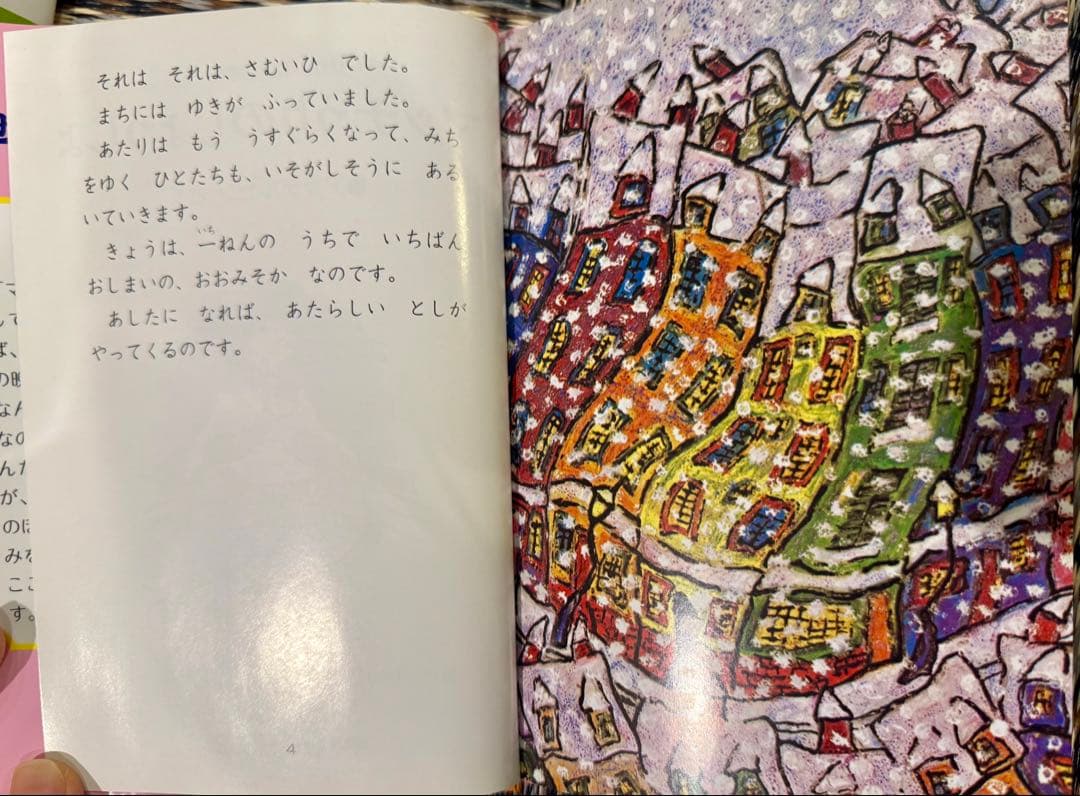 それは　それは、さむいひ　でした。
まちには　ゆきが　ふっていました。
あたりは　もう　うすぐらくなって、みち
をゆく　ひとたちも、いそがしそうに　ある
いていきます。
きょうは、一ねんの　うちで　いちばん
おしまいの、おおみそか　なのです。
あしたに　なれば、　あたらしい　としが
やってくるのです。
4